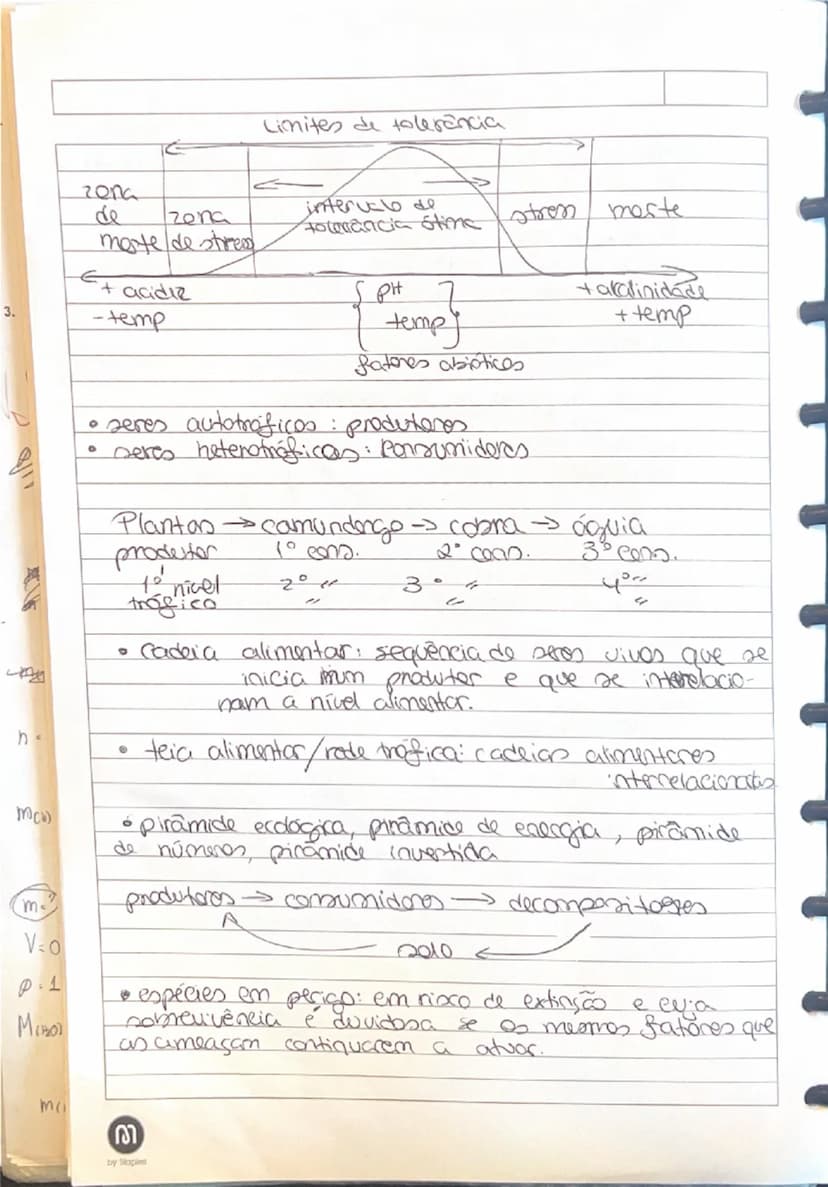 Limites de tolerância
zona de morte
zona de stress
intervalo de tolerância ótima
stress
morte
+ acidez
- temp
pH
temp
+ alcalinidade
+ temp
fatores abióticos
3.
• seres autotróficos: produtores
• seres heterotróficos: consumidores
Plantas → camundongo → cobra → águia
produtor 1º cons. 2º cons. 3º cons.
1º nível 2º " 3º " 4º "
trófico " " "
• cadeia alimentar: sequência de seres vivos que se
inicia num produtor e que se interrelacio-
nam a nível alimentar.
n =
• teia alimentar/rede trófica: cadeias alimentares
interrelacionadas
• pirâmide ecológica, pirâmide de energia, pirâmide
de números, pirâmide invertida
produtores → consumidores → decompositores
solo
V=0
• espécies em perigo: em risco de extinção e cuja
sobrevivência é duvidosa se os mesmos fatores que
as ameaçam continuarem a atuar.
by Staples